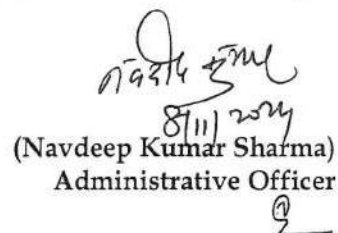 नवदीप कुमार
8/11/2024
(Navdeep Kumar Sharma)
Administrative Officer